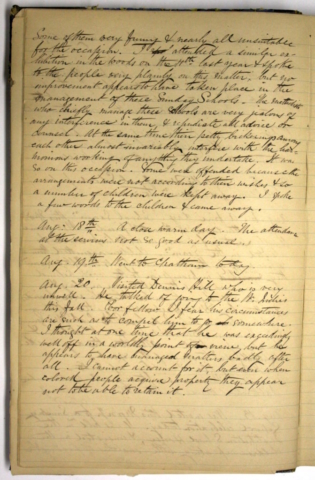 Some of them very funny & nearly all unsuitable
for the occasion. I attended a similar ex-
hibition in the woods on the 10th last year & spoke
to the people very plainly on the matter, but no
improvement appears to have taken place in the
management of these Sunday Schools. The
who chiefly manage these schools are very jealous of
any interference in them, & repudiate all advice or
counsel. At the same time their petty bickerings among
each other almost invariably interfere with the har-
monious working of anything they undertake. It was
so on this occasion. Some were offended because the
arrangements were not according to their wishes & so
a number of children were kept away. I spoke
a few words to the children & came away.
Aug: 18th. A close warm day. The attendance
at the services not so good as usual.
Aug: 19th. Went to Chatham to day.
Aug: 20. Visited Dennis Hill, who is very
unwell. He talked of going to the W. Indies
this fall. Poor fellow I fear his circumstances
are such as to compel him to go somewhere.
I thought at one time that he was
well off in a worldly point of view, but he
appears to have managed matters badly after
all. I cannot account for it, but even when
colored people acquire property they appear
not to be able to retain it.